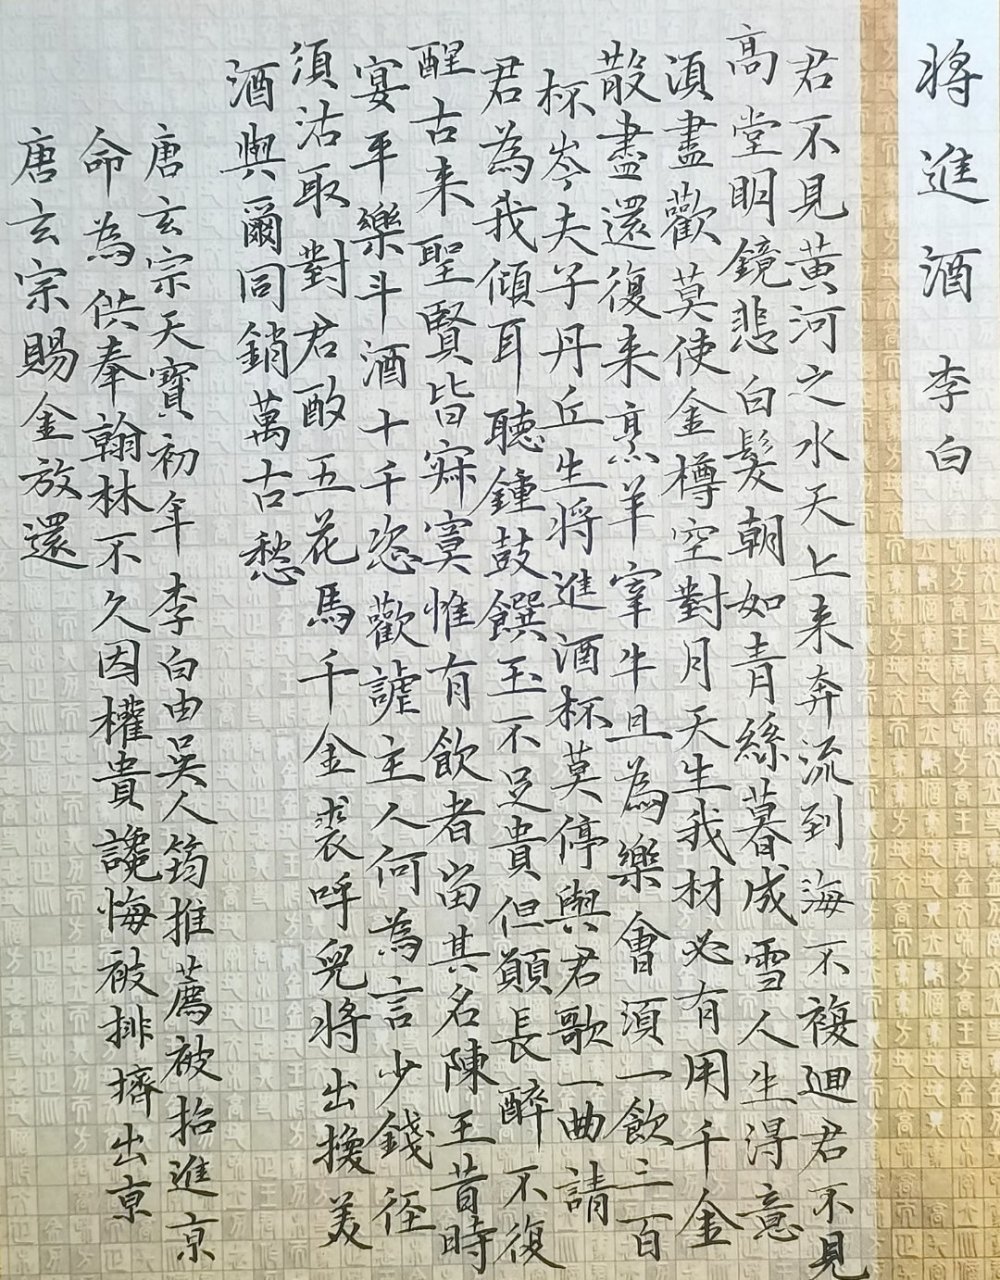 將進酒 李白
君不見黃河之水天上来奔流到海不複迴君不見
高堂明鏡悲白髮朝如青絲暮成雪人生得意
須盡歡莫使金樽空對月天生我材必有用千金
散盡還復来烹羊宰牛且為樂會須一飲三百
杯岑夫子丹丘生將進酒杯莫停與君歌一曲請
君為我傾耳聽鍾鼓饌玉不足貴但願長醉不復
醒古来聖賢皆寂寞惟有飲者留其名陳王昔時
宴平樂斗酒十千恣歡謔主人何為言少錢徑
須沽取對君酌五花馬千金裘呼兒將出換美
酒與爾同銷萬古愁
唐玄宗天寶初年 李白由吳人筠推薦被抬進京
命為供奉翰林不久因權貴讒悔被排擠出京
唐玄宗賜金放還